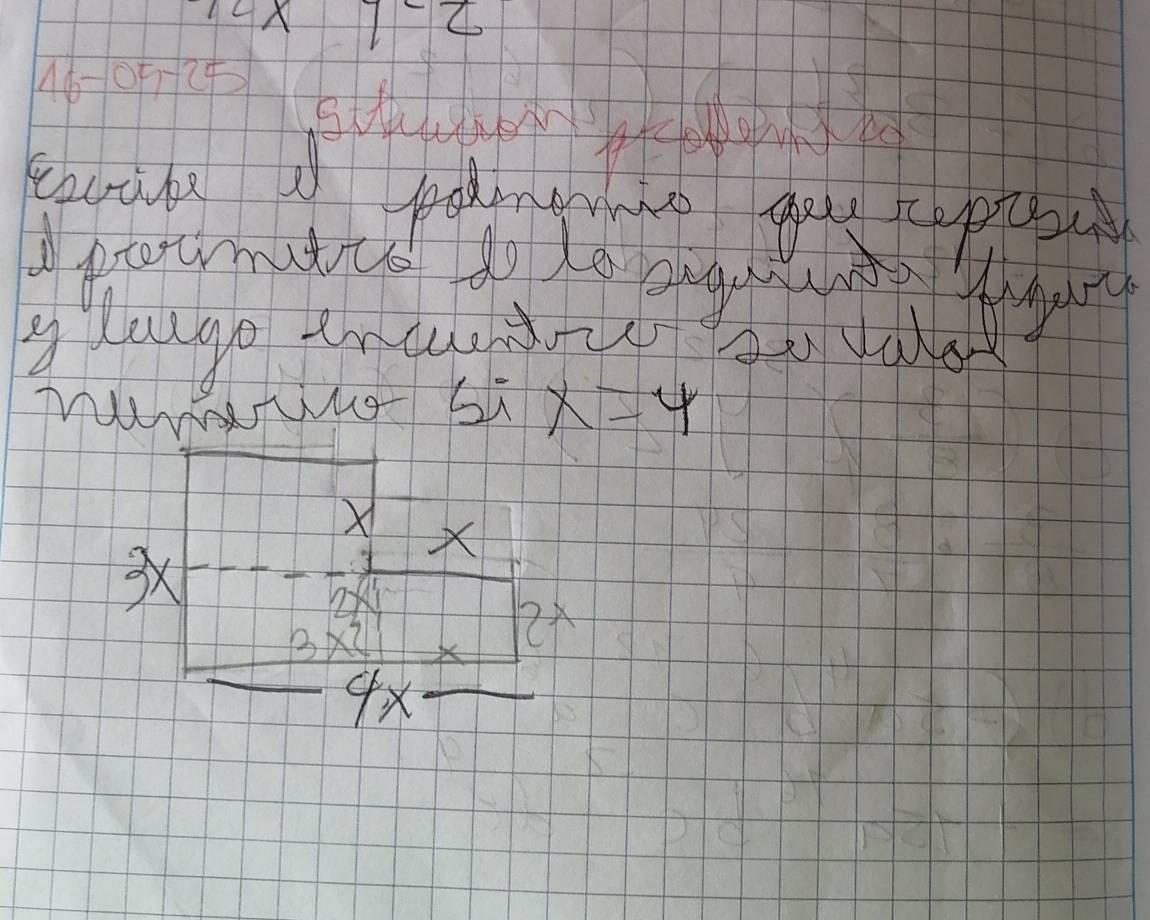 16-05-25
Situacion problemica
Escribe el polinomio que representa
el perimetro de la siguiente figura
y luego encuentre su valor
numerico Si x = 4
X
X
3X
2X
2X
3X
X
4X